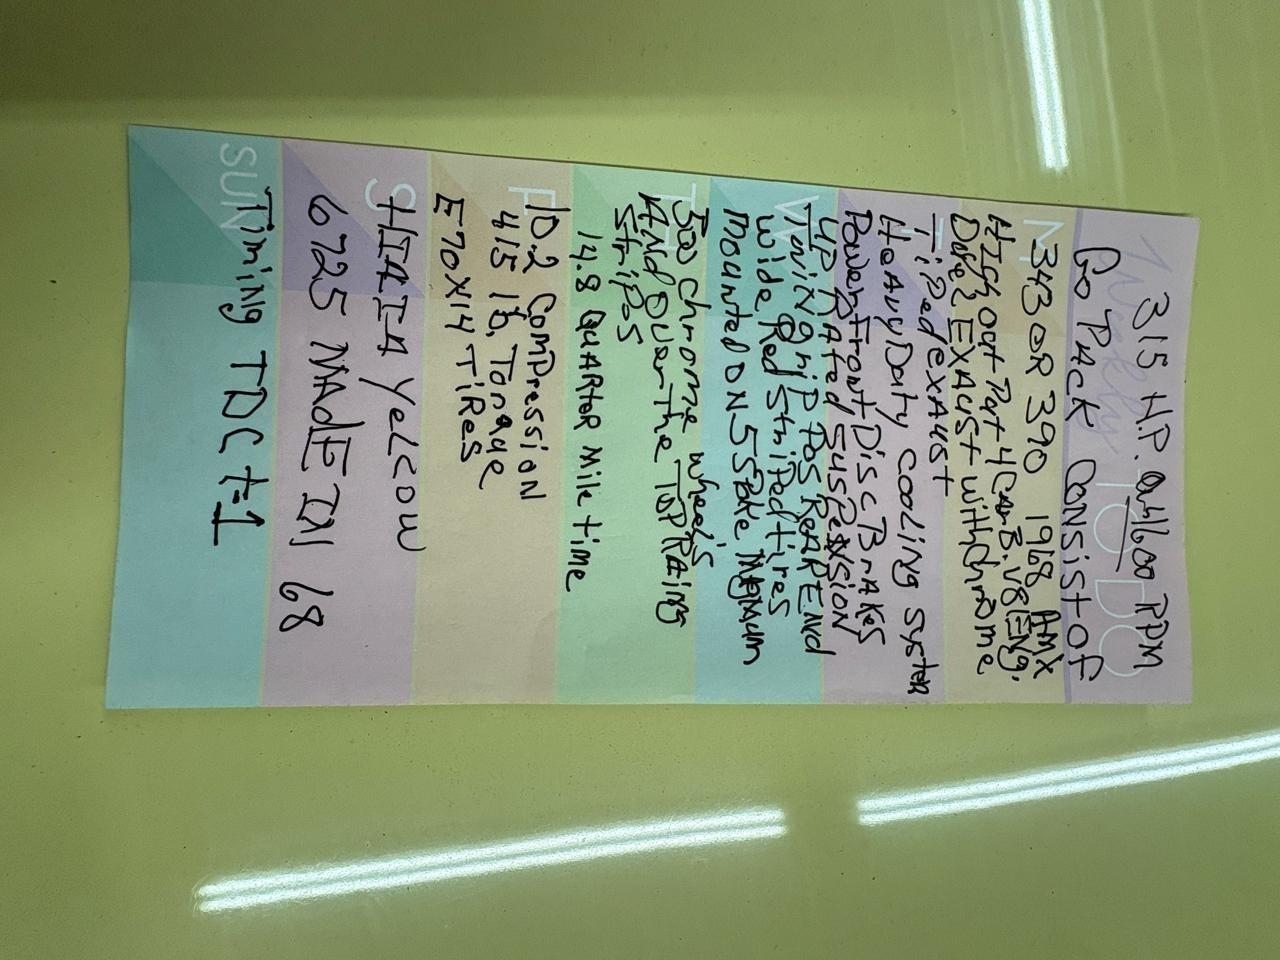 Weekly TO DO
315 H.P. at 4600 RPM
Go PACK CONSIST OF
M
343 OR 390 1968 AMX
HIGH out Put 4 CarB. V8 ENg.
Duel EXAUST with Chrome
T
Tiped exAust
HeAvy Duty cooLing System
Power Front Disc BrAKes
W
UP RAted SusPenSION
TwiN griP Pos ReAR END
wide Red StriPed tires
mounted ON 5 SPoke MAgnum
TH
500 chrome wheels
ANd Over The ToP RAing
StriPes
14.8 QUARteR Mile time
F
10.2 ComPression
415 lb. Torque
E70X14 TiRes
S
HIAIA YeLLow
6725 MAdE IN 68
SUN
Timing TDC t-1